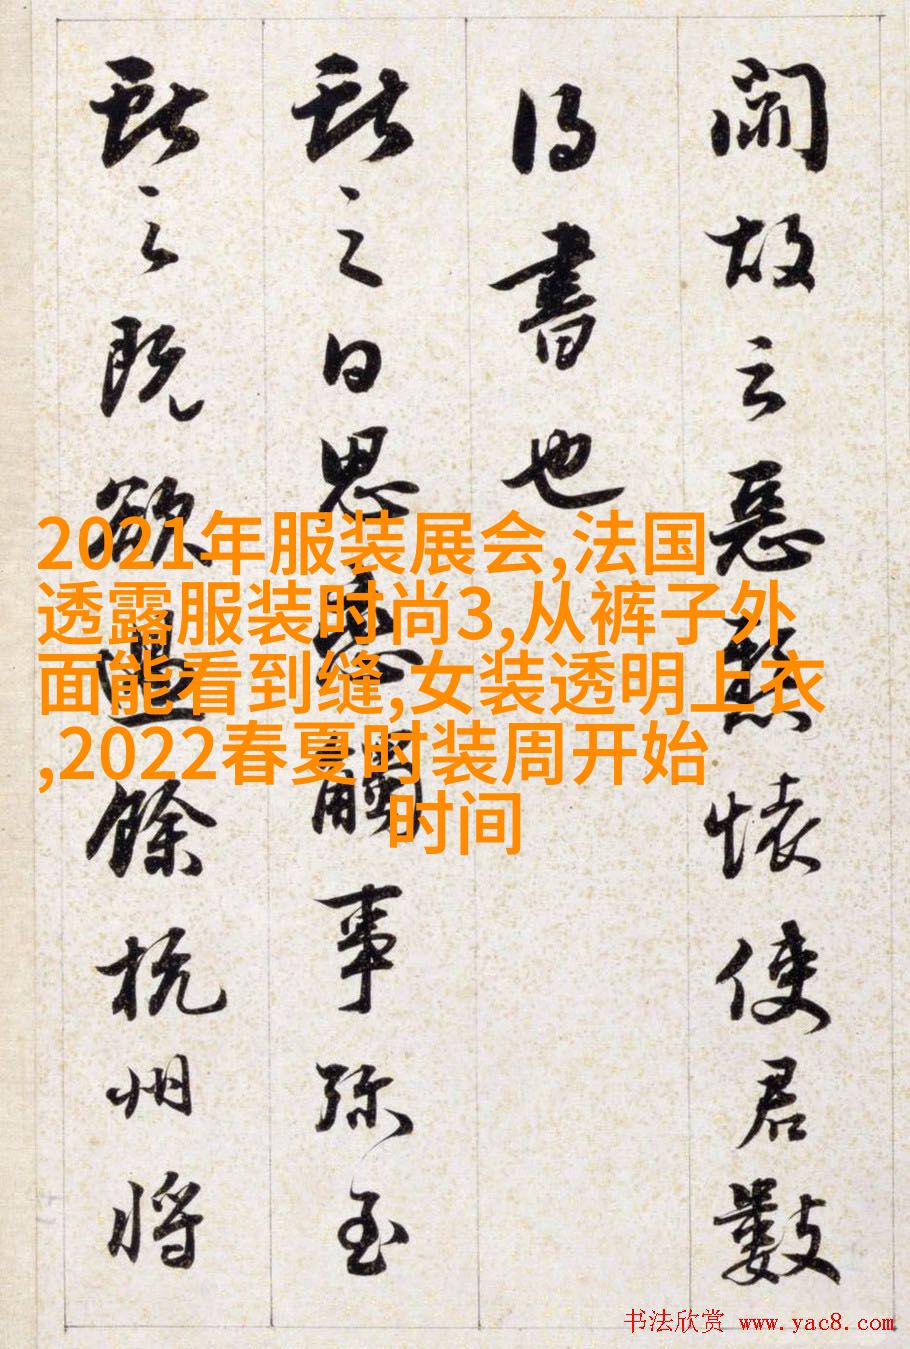 閙故云惡懷使君數
得書也
獻之日思戀觸事弥至
獻之既欲過餘杭州將
2021年服装展会,法国
透露服装时尚3,从裤子外
面能看到缝,女装透明上衣
,2022春夏时装周开始
时间
书法欣赏 www.yac8.com